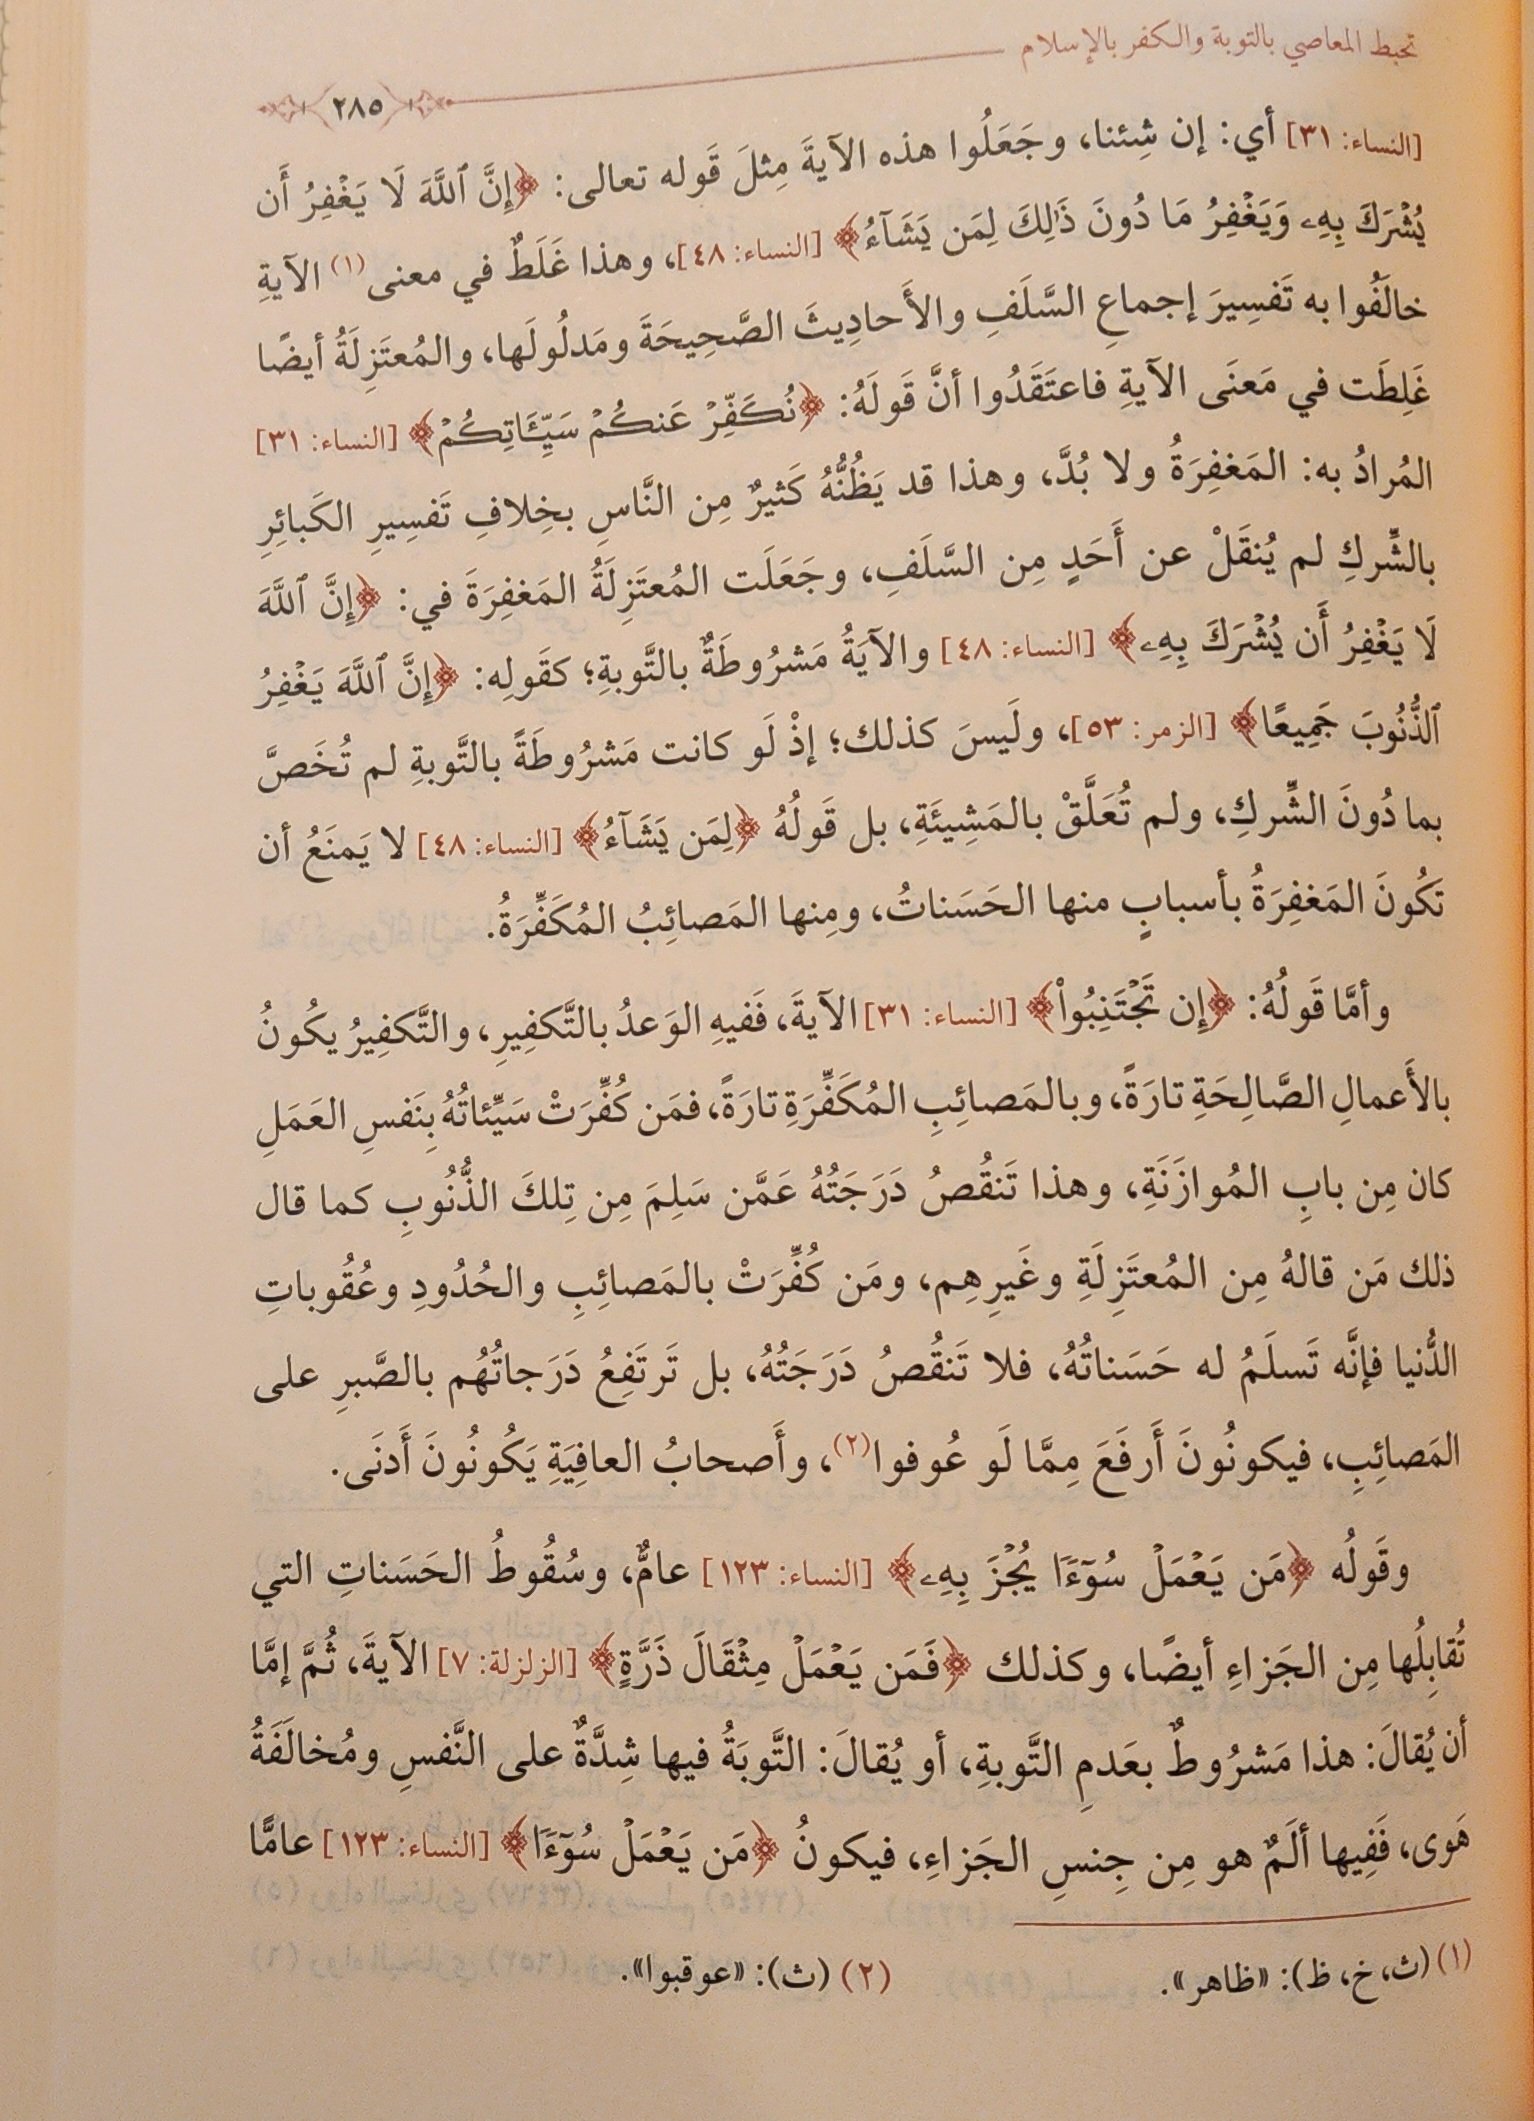 تحبط المعاصي بالتوبة والكفر بالإسلام
٢٨٥
[النساء: ٣١] أي: إن شِئنا، وجَعَلُوا هذه الآيةَ مِثلَ قَوله تعالى: ﴿إِنَّ ٱللَّهَ لَا يَغْفِرُ أَن
يُشْرَكَ بِهِۦ وَيَغْفِرُ مَا دُونَ ذَٰلِكَ لِمَن يَشَآءُ﴾ [النساء: ٤٨]، وهذا غَلَطٌ في معنى(١) الآيةِ
خالَفُوا به تَفسِيرَ إجماعِ السَّلَفِ والأَحادِيثَ الصَّحِيحَةَ ومَدلُولَها، والمُعتَزِلَةُ أيضًا
غَلِطَت في مَعنَى الآيةِ فاعتَقَدُوا أنَّ قَولَهُ: ﴿نُكَفِّرْ عَنكُمْ سَيِّـَٔاتِكُمْ﴾ [النساء: ٣١]
المُرادُ به: المَغفِرَةُ ولا بُدَّ، وهذا قد يَظُنُّهُ كَثيرٌ مِن النَّاسِ بخِلافِ تَفسِيرِ الكَبائِرِ
بالشِّركِ لم يُنقَلْ عن أَحَدٍ مِن السَّلَفِ، وجَعَلَت المُعتَزِلَةُ المَغفِرَةَ في: ﴿إِنَّ ٱللَّهَ
لَا يَغْفِرُ أَن يُشْرَكَ بِهِۦ﴾ [النساء: ٤٨] والآيَةُ مَشرُوطَةٌ بالتَّوبةِ؛ كقَولِه: ﴿إِنَّ ٱللَّهَ يَغْفِرُ
ٱلذُّنُوبَ جَمِيعًا﴾ [الزمر: ٥٣]، ولَيسَ كذلك؛ إذْ لَو كانت مَشرُوطَةً بالتَّوبةِ لم تُخَصَّ
بما دُونَ الشِّركِ، ولم تُعَلَّقْ بالمَشِيئَةِ، بل قَولُهُ ﴿لِمَن يَشَآءُ﴾ [النساء: ٤٨] لا يَمنَعُ أن
تكُونَ المَغفِرَةُ بأسبابٍ منها الحَسَناتُ، ومِنها المَصائِبُ المُكَفِّرَةُ.
وأمَّا قَولُهُ: ﴿إِن تَجْتَنِبُوا۟﴾ [النساء: ٣١] الآيةَ، فَفيهِ الوَعدُ بالتَّكفِيرِ، والتَّكفِيرُ يكُونُ
بالأَعمالِ الصَّالِحَةِ تارَةً، وبالمَصائِبِ المُكَفِّرَةِ تارَةً، فمَن كُفِّرَتْ سَيِّئاتُهُ بِنَفسِ العَمَلِ
كان مِن بابِ المُوازَنَةِ، وهذا تَنقُصُ دَرَجَتُهُ عَمَّن سَلِمَ مِن تِلكَ الذُّنُوبِ كما قال
ذلك مَن قالهُ مِن المُعتَزِلَةِ وغَيرِهِم، ومَن كُفِّرَتْ بالمَصائِبِ والحُدُودِ وعُقُوباتِ
الدُّنيا فإنَّه تَسلَمُ له حَسَناتُهُ، فلا تَنقُصُ دَرَجَتُهُ، بل تَرتَفِعُ دَرَجاتُهُم بالصَّبرِ على
المَصائِبِ، فيكونُونَ أَرفَعَ مِمَّا لَو عُوفوا(٢)، وأَصحابُ العافِيَةِ يَكُونُونَ أَدنَى.
وقَولُه ﴿مَن يَعْمَلْ سُوٓءًا يُجْزَ بِهِۦ﴾ [النساء: ١٢٣] عامٌّ، وسُقُوطُ الحَسَناتِ التي
تُقابِلُها مِن الجَزاءِ أيضًا، وكذلك ﴿فَمَن يَعْمَلْ مِثْقَالَ ذَرَّةٍ﴾ [الزلزلة: ٧] الآيةَ، ثُمَّ إمَّا
أن يُقالَ: هذا مَشرُوطٌ بعَدمِ التَّوبةِ، أو يُقالَ: التَّوبَةُ فيها شِدَّةٌ على النَّفسِ ومُخالَفَةُ
هَوى، فَفِيها ألَمٌ هو مِن جِنسِ الجَزاءِ، فيكونُ ﴿مَن يَعْمَلْ سُوٓءًا﴾ [النساء: ١٢٣] عامًّا
(١) (ث، خ، ظ): «ظاهر». (٢) (ث): «عوقبوا».